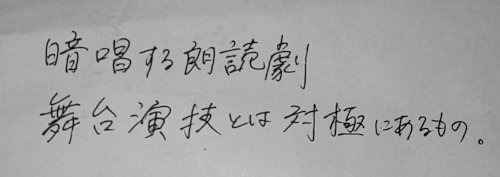 暗唱する朗読劇
舞台演技とは対極にあるもの。